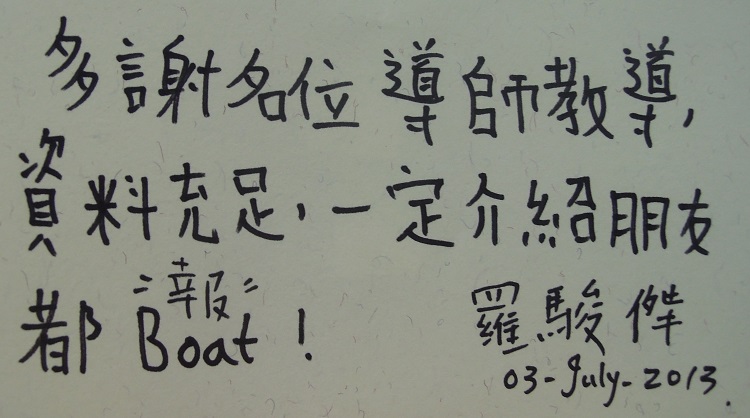 多謝名位導師教導,
資料充足,一定介紹朋友
都"報"
Boat!
羅駿傑
03-July-2013.